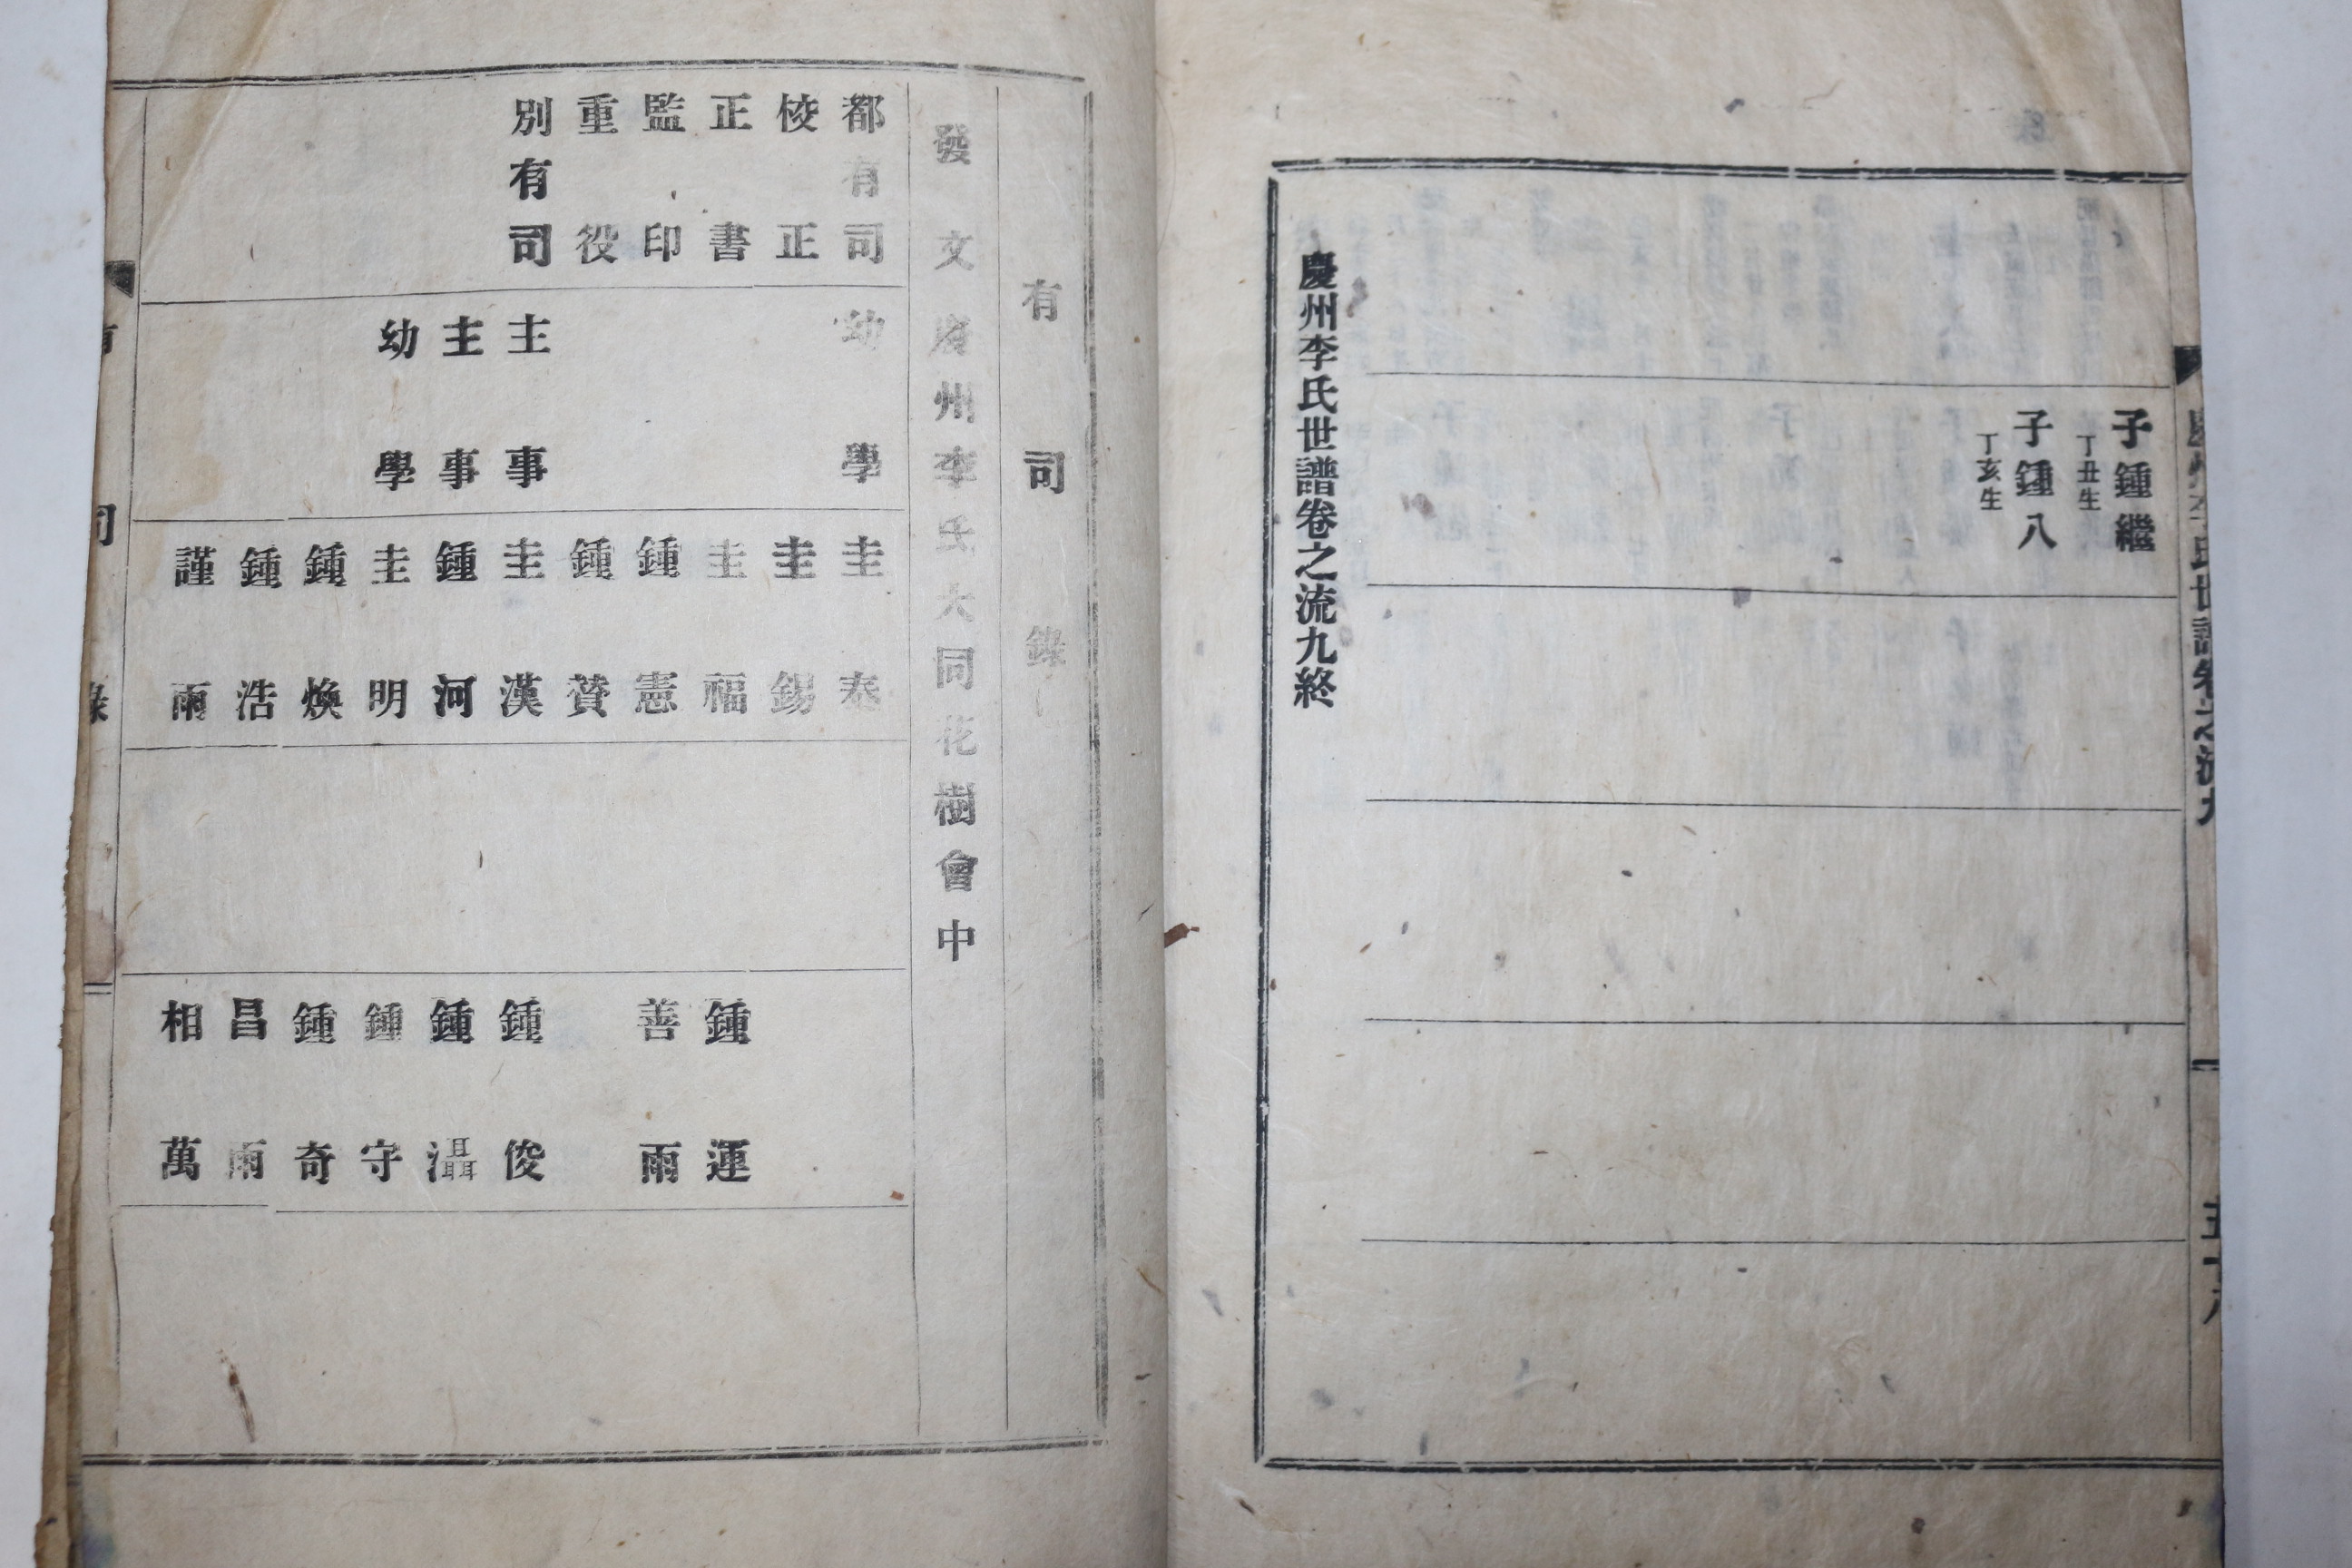 子鍾繼
丁丑生
子鍾八
丁亥生
慶州李氏世譜卷之流九終
有司錄
發文慶州李氏大同花樹會中
都有司 幼學 圭泰
校正 圭錫
正書 圭福 鍾運
監印 鍾憲 善雨
重役 鍾贊
別有司 主事 圭漢 鍾俊
主事 鍾河 鍾灄
幼學 圭明 鍾守
鍾煥 鍾奇
鍾浩 昌雨
謹雨 相萬